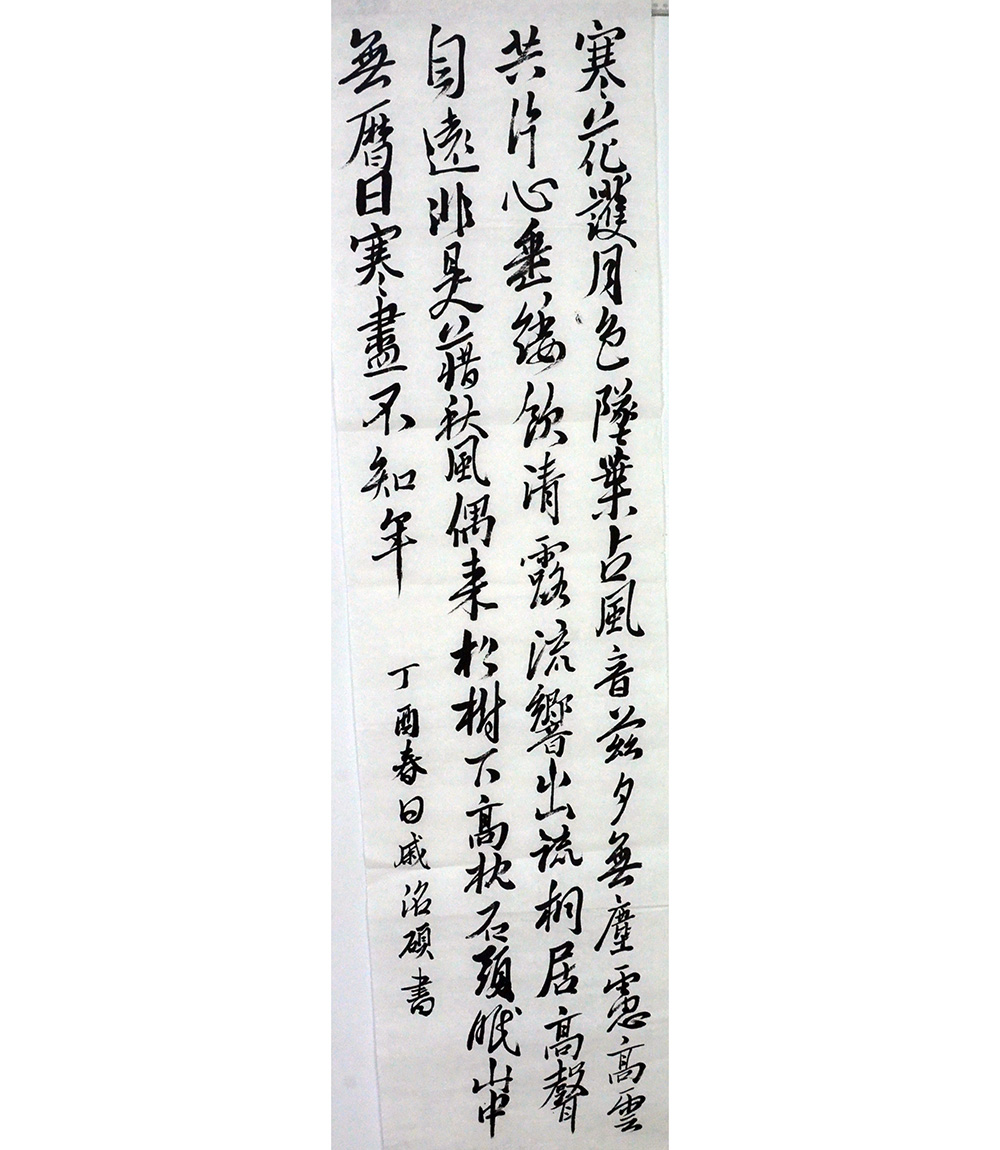 寒花護月色墜葉占風音茲夕無塵慮高雲
共片心垂緌飲清露流響出疏桐居高聲
自遠非是藉秋風偶来松樹下高枕石頭眠山中
無曆日寒盡不知年
丁酉春日戚洺碩書